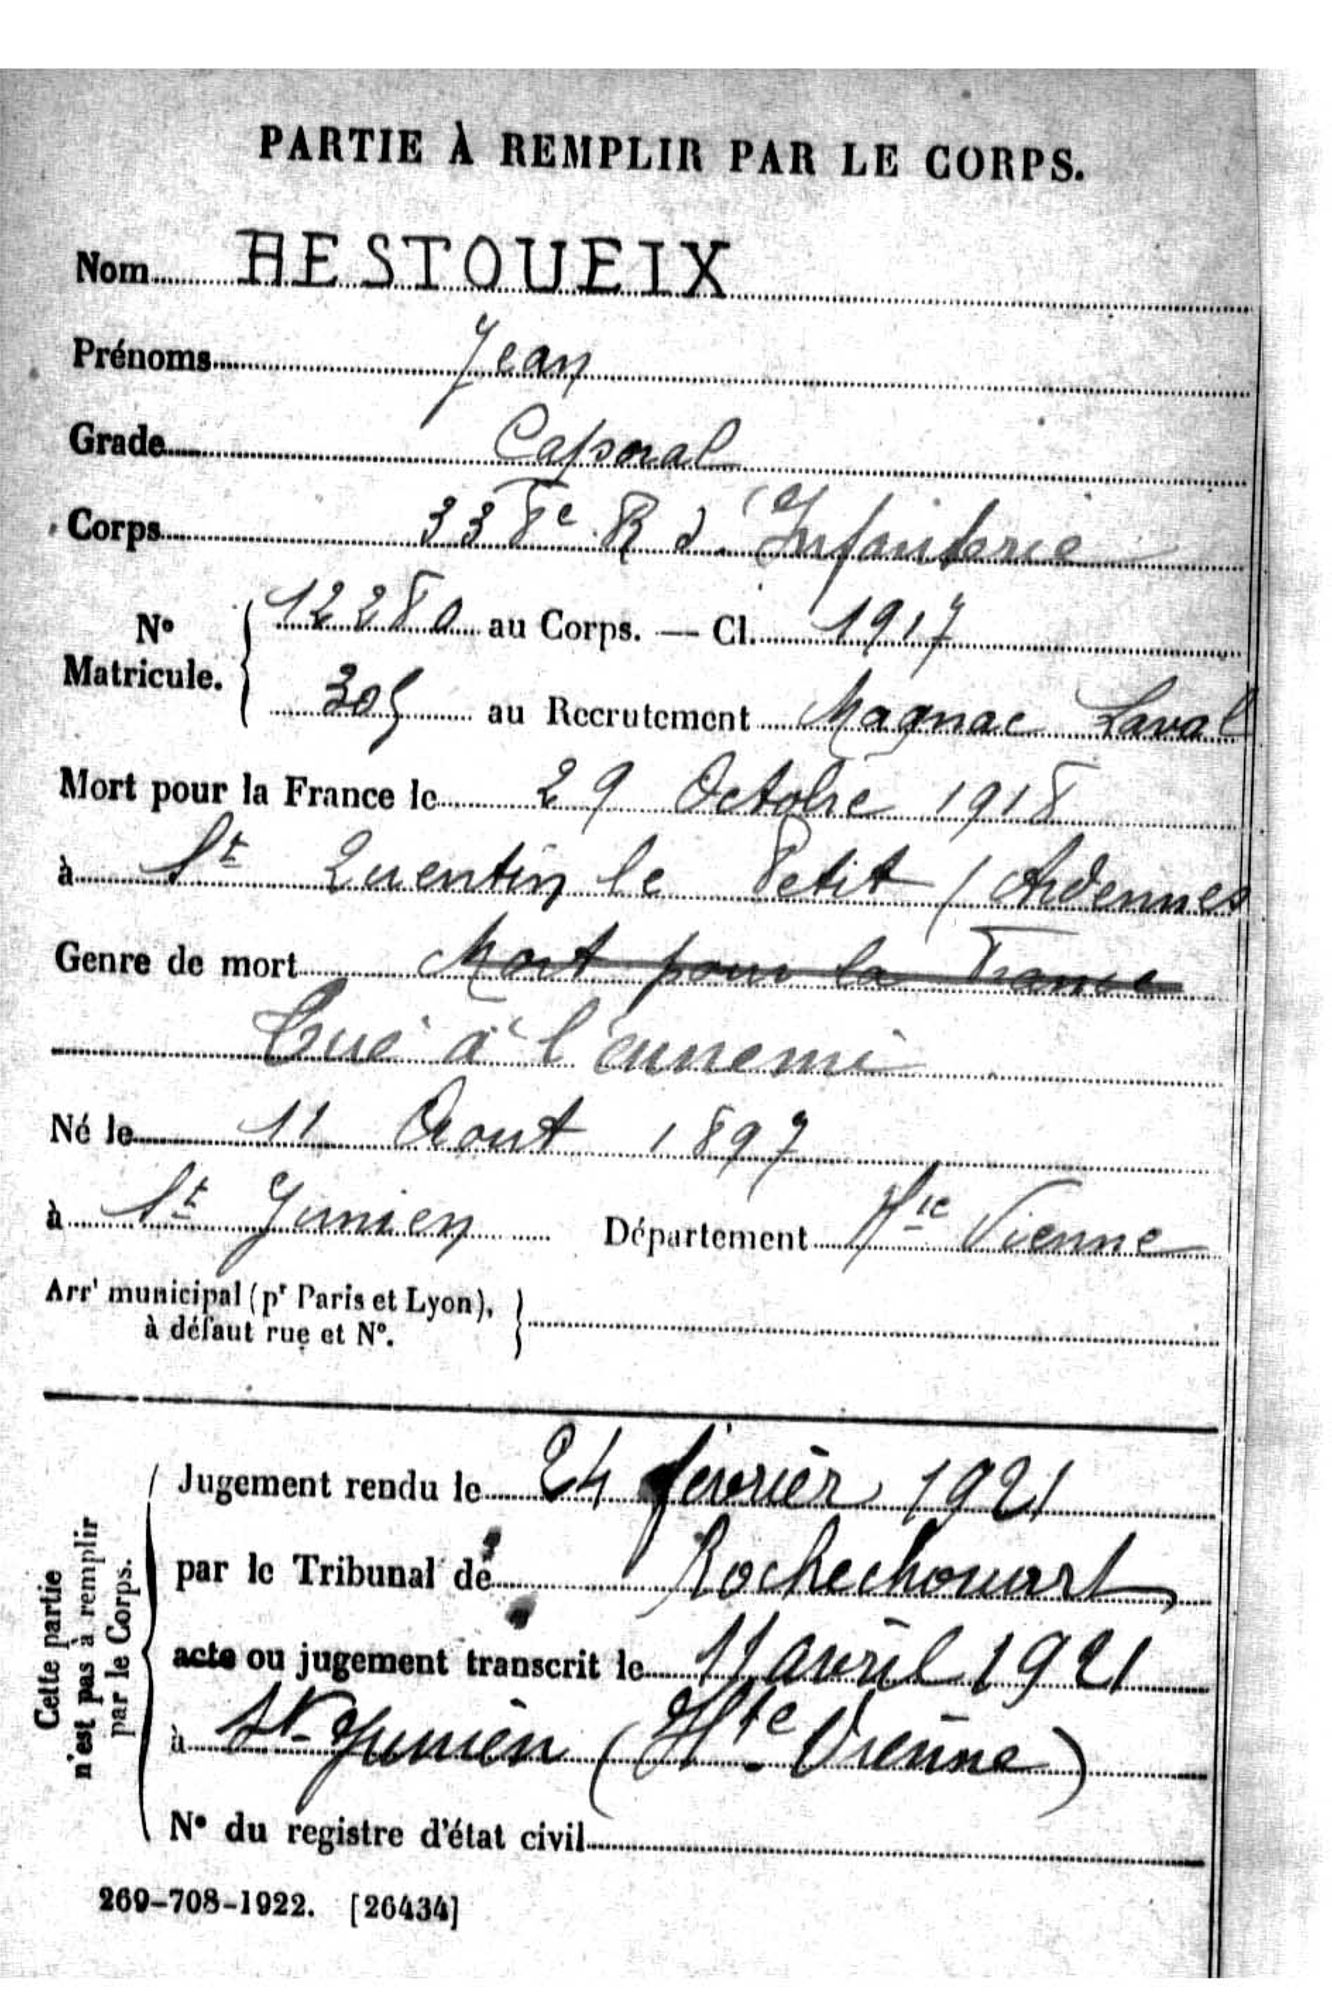 PARTIE À REMPLIR PAR LE CORPS.
Nom HESTOUEIX
Prénoms Jean
Grade Caporal
Corps 338e R d'Infanterie
No Matricule. 12280 au Corps. — Cl. 1917
305 au Recrutement Magnac Laval
Mort pour la France le 29 Octobre 1918
à St Quentin le Petit (Ardennes
Genre de mort Mort pour la France
Tué à l'ennemi
Né le 11 Aout 1897
à St Junien Département Hte Vienne
Arrt municipal (pr Paris et Lyon),
à défaut rue et No.
Cette partie
n'est pas à remplir
par le Corps.
Jugement rendu le 24 février 1921
par le Tribunal de Rochechouart
acte ou jugement transcrit le 11 avril 1921
à St Junien (Hte Vienne)
No du registre d'état civil
269-708-1922. [26434]